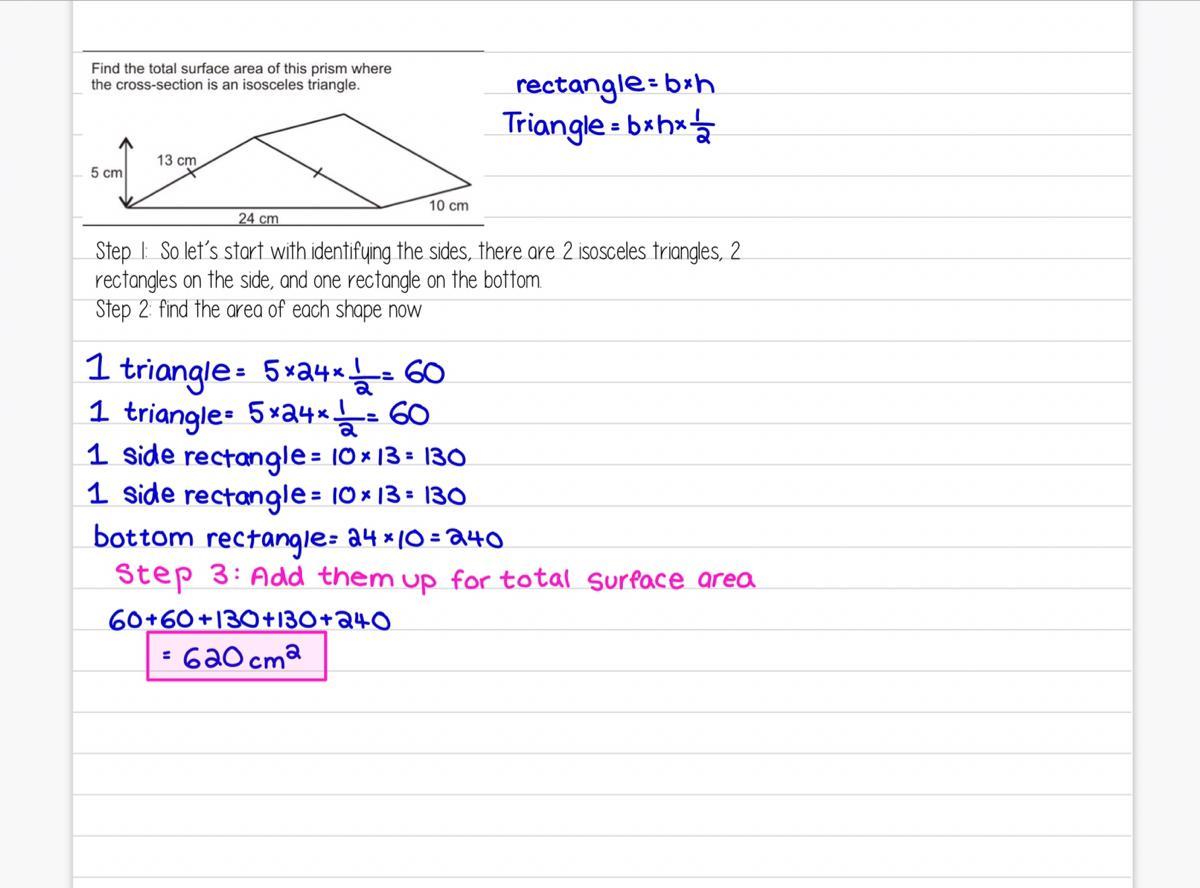 Find the total surface area of this prism where
the cross-section is an isosceles triangle.
rectangle = b×h
Triangle = b×h×1/2
13 cm
5 cm
10 cm
24 cm
Step 1: So let's start with identifying the sides, there are 2 isosceles triangles, 2
rectangles on the side, and one rectangle on the bottom.
Step 2: find the area of each shape now
1 triangle = 5×24×1/2 = 60
1 triangle = 5×24×1/2 = 60
1 side rectangle = 10×13 = 130
1 side rectangle = 10×13 = 130
bottom rectangle = 24×10 = 240
Step 3: Add them up for total surface area
60+60+130+130+240
= 620 cm²